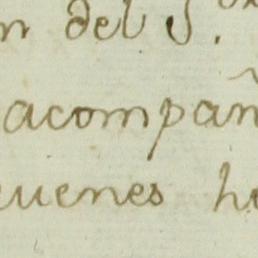 n del S.
acompañ
euenes he